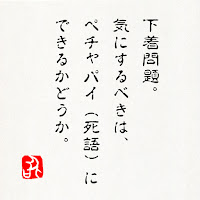 下着問題。
気にするべきは、
ペチャパイ（死語）に
できるかどうか。